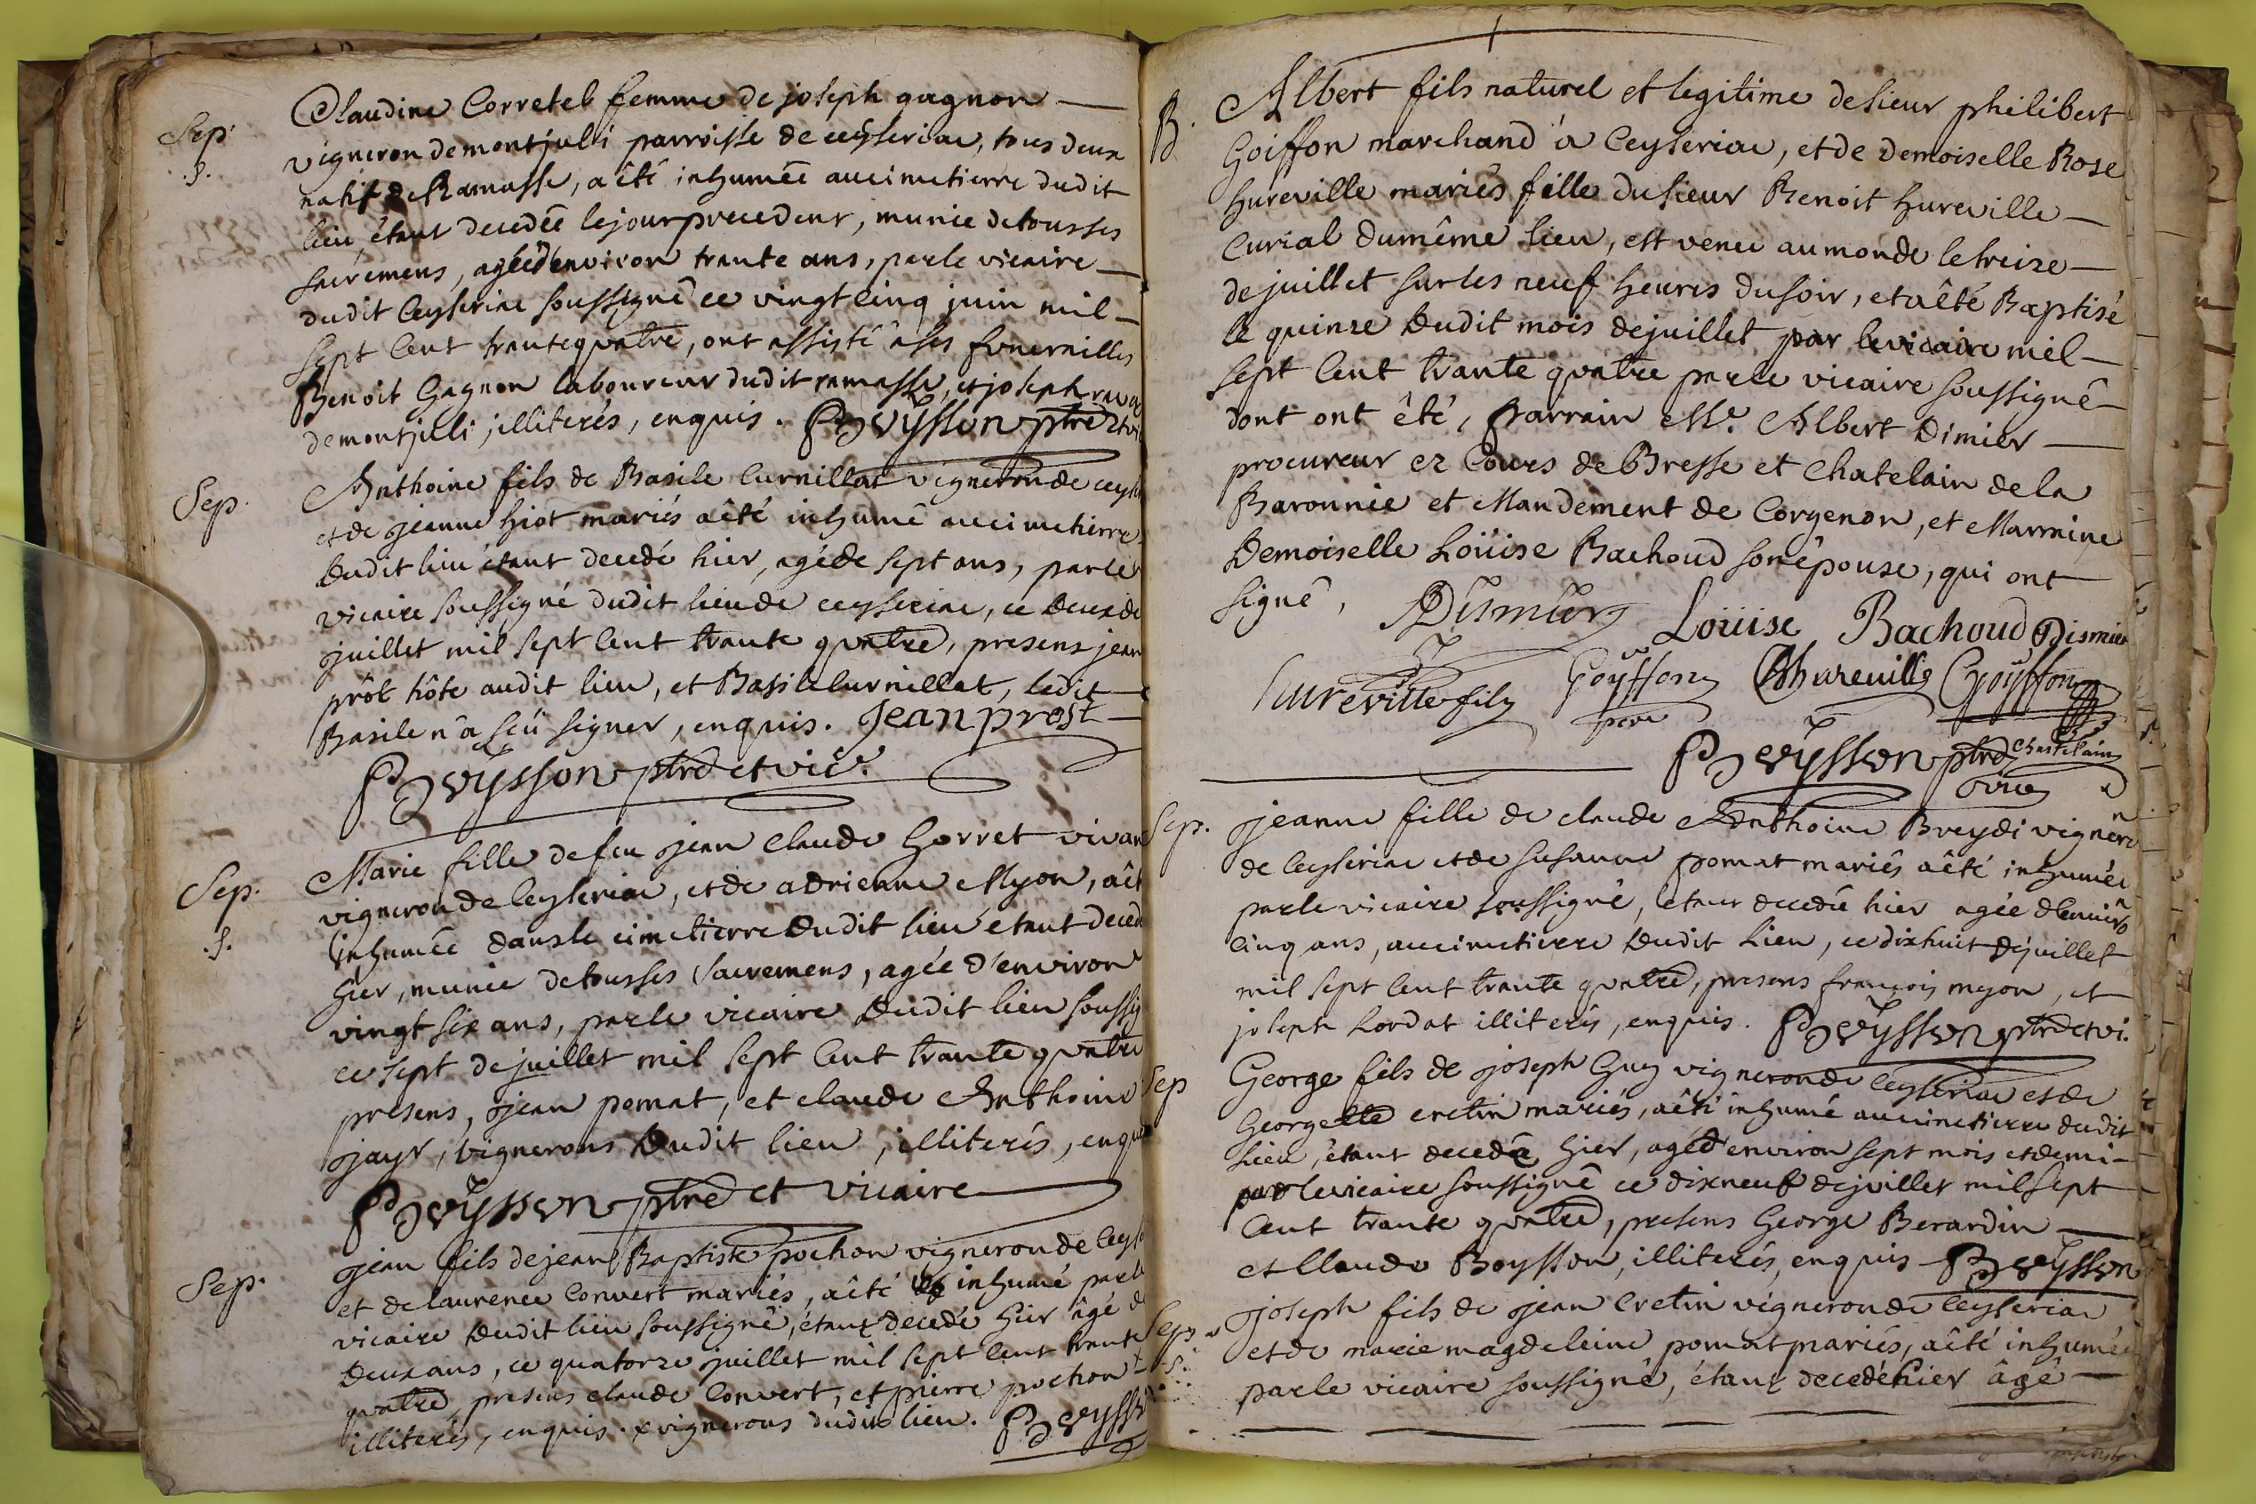 Sep.
.S.
Claudine Corretel femme de joseph gagnon
vigneron de montjuli parroisse de ceyseriac, tous deux
natif de Ramasse, a êté inhumée au cimetierre dudit
lieu étant decedée le jour precedent, munie de tous ses
sacremens, agée d'environ trante ans, par le vicaire
dudit Ceyseriac soussigné ce vingt cinq juin mil
sept cent trante quatre, ont assisté à ses funerailles
Benoit Gagnon laboureur dudit ramasse, et joseph
de montjuli, illiterés, enquis. Beysson ptre et vi
Sep.
Anthoine fils de Basile Curnillat vigneron de ceyse
et de jeanne hiot mariés a êté inhumé au cimetierre
dudit lieu étant decedé hier, agé de sept ans, par le
vicaire soussigné dudit lieu de ceyseriac, ce deux de
juillet mil sept cent trante quatre, presens jean
prôt hôte audit lieu, et Basile Curnillat, ledit
Basile n'a sçû signer, enquis. Jean prost
Beysson ptre et vic.
Sep.
.S.
Marie fille de feu jean Claude Gorret vivan
vigneron de Ceyseriac, et de adrienne Myon, a êt
inhumée dans le cimetierre dudit lieu étant deced
hier, munie de tous ses sacremens, agée d'environ
vingt six ans, par le vicaire dudit lieu soussig
ce sept de juillet mil sept cent trante quatre
presens, jean pomat, et claude Anthoine
jayr, vignerons dudit lieu, illiterés, enquis
Beysson ptre et vicaire
Sep.
jean fils de jean Baptiste pochon vigneron de Ceyse
et de laurence Convert mariés, a êté inhumé par le
vicaire dudit lieu soussigné, étant decedé hier âgé de
deux ans, ce quatorze juillet mil sept cent trante
quatre, presens claude Convert, et pierre pochon x
illiterés, enquis. x vignerons dudit lieu. Beysson
B.
Albert fils naturel et legitime de sieur philibert
Goiffon marchand à Ceyseriac, et de demoiselle Rose
hureville mariés fille du sieur Benoit hureville
Curial du même lieu, est venu au monde le treize
de juillet sur les neuf heures du soir, et a êté Baptisé
le quinze dudit mois de juillet par le vicaire mil
sept cent trante quatre par le vicaire soussigné
dont ont été, parrain Mr. Albert Dimier
procureur ez Cours de Bresse et Chatelain de la
Baronnie et Mandement de Corgenon, et Marraine
Demoiselle Loüise Bachoud son épouse, qui ont
signé, Dismier Loüise Bachoud Dismier
hureville fils Goÿffon pere Bhureville Goyffon
chastelain
Beysson ptre
vic
Sep.
jeanne fille de claude Anthoine Breydi vignero
de Ceyseriac et de susanne pomat mariés a êté inhumée
par le vicaire soussigné, etant decedée hier agée d'enviro
cinq ans, au cimetierre dudit lieu, ce dixhuit de juillet
mil sept cent trante quatre, presens françois myon, et
joseph Lordat illiterés, enquis. Beysson ptre et vi.
Sep
George fils de joseph Guy vigneron de Ceyseriac et de
Georgette cretin mariés, a êté inhumé au cimetierre dudit
lieu, étant decedé hier, agé d'environ sept mois et demi
par le vicaire soussigné ce dixneuf de juillet mil sept
cent trante quatre, presens George Berardin
et Claude Boysson, illiterés, enquis Beysson
Sep.
.S.
joseph fils de jean Cretin vigneron de Ceyseriac
et de marie magdeleine pomat mariés, a êté inhumé
par le vicaire soussigné, étant decedé hier âgé